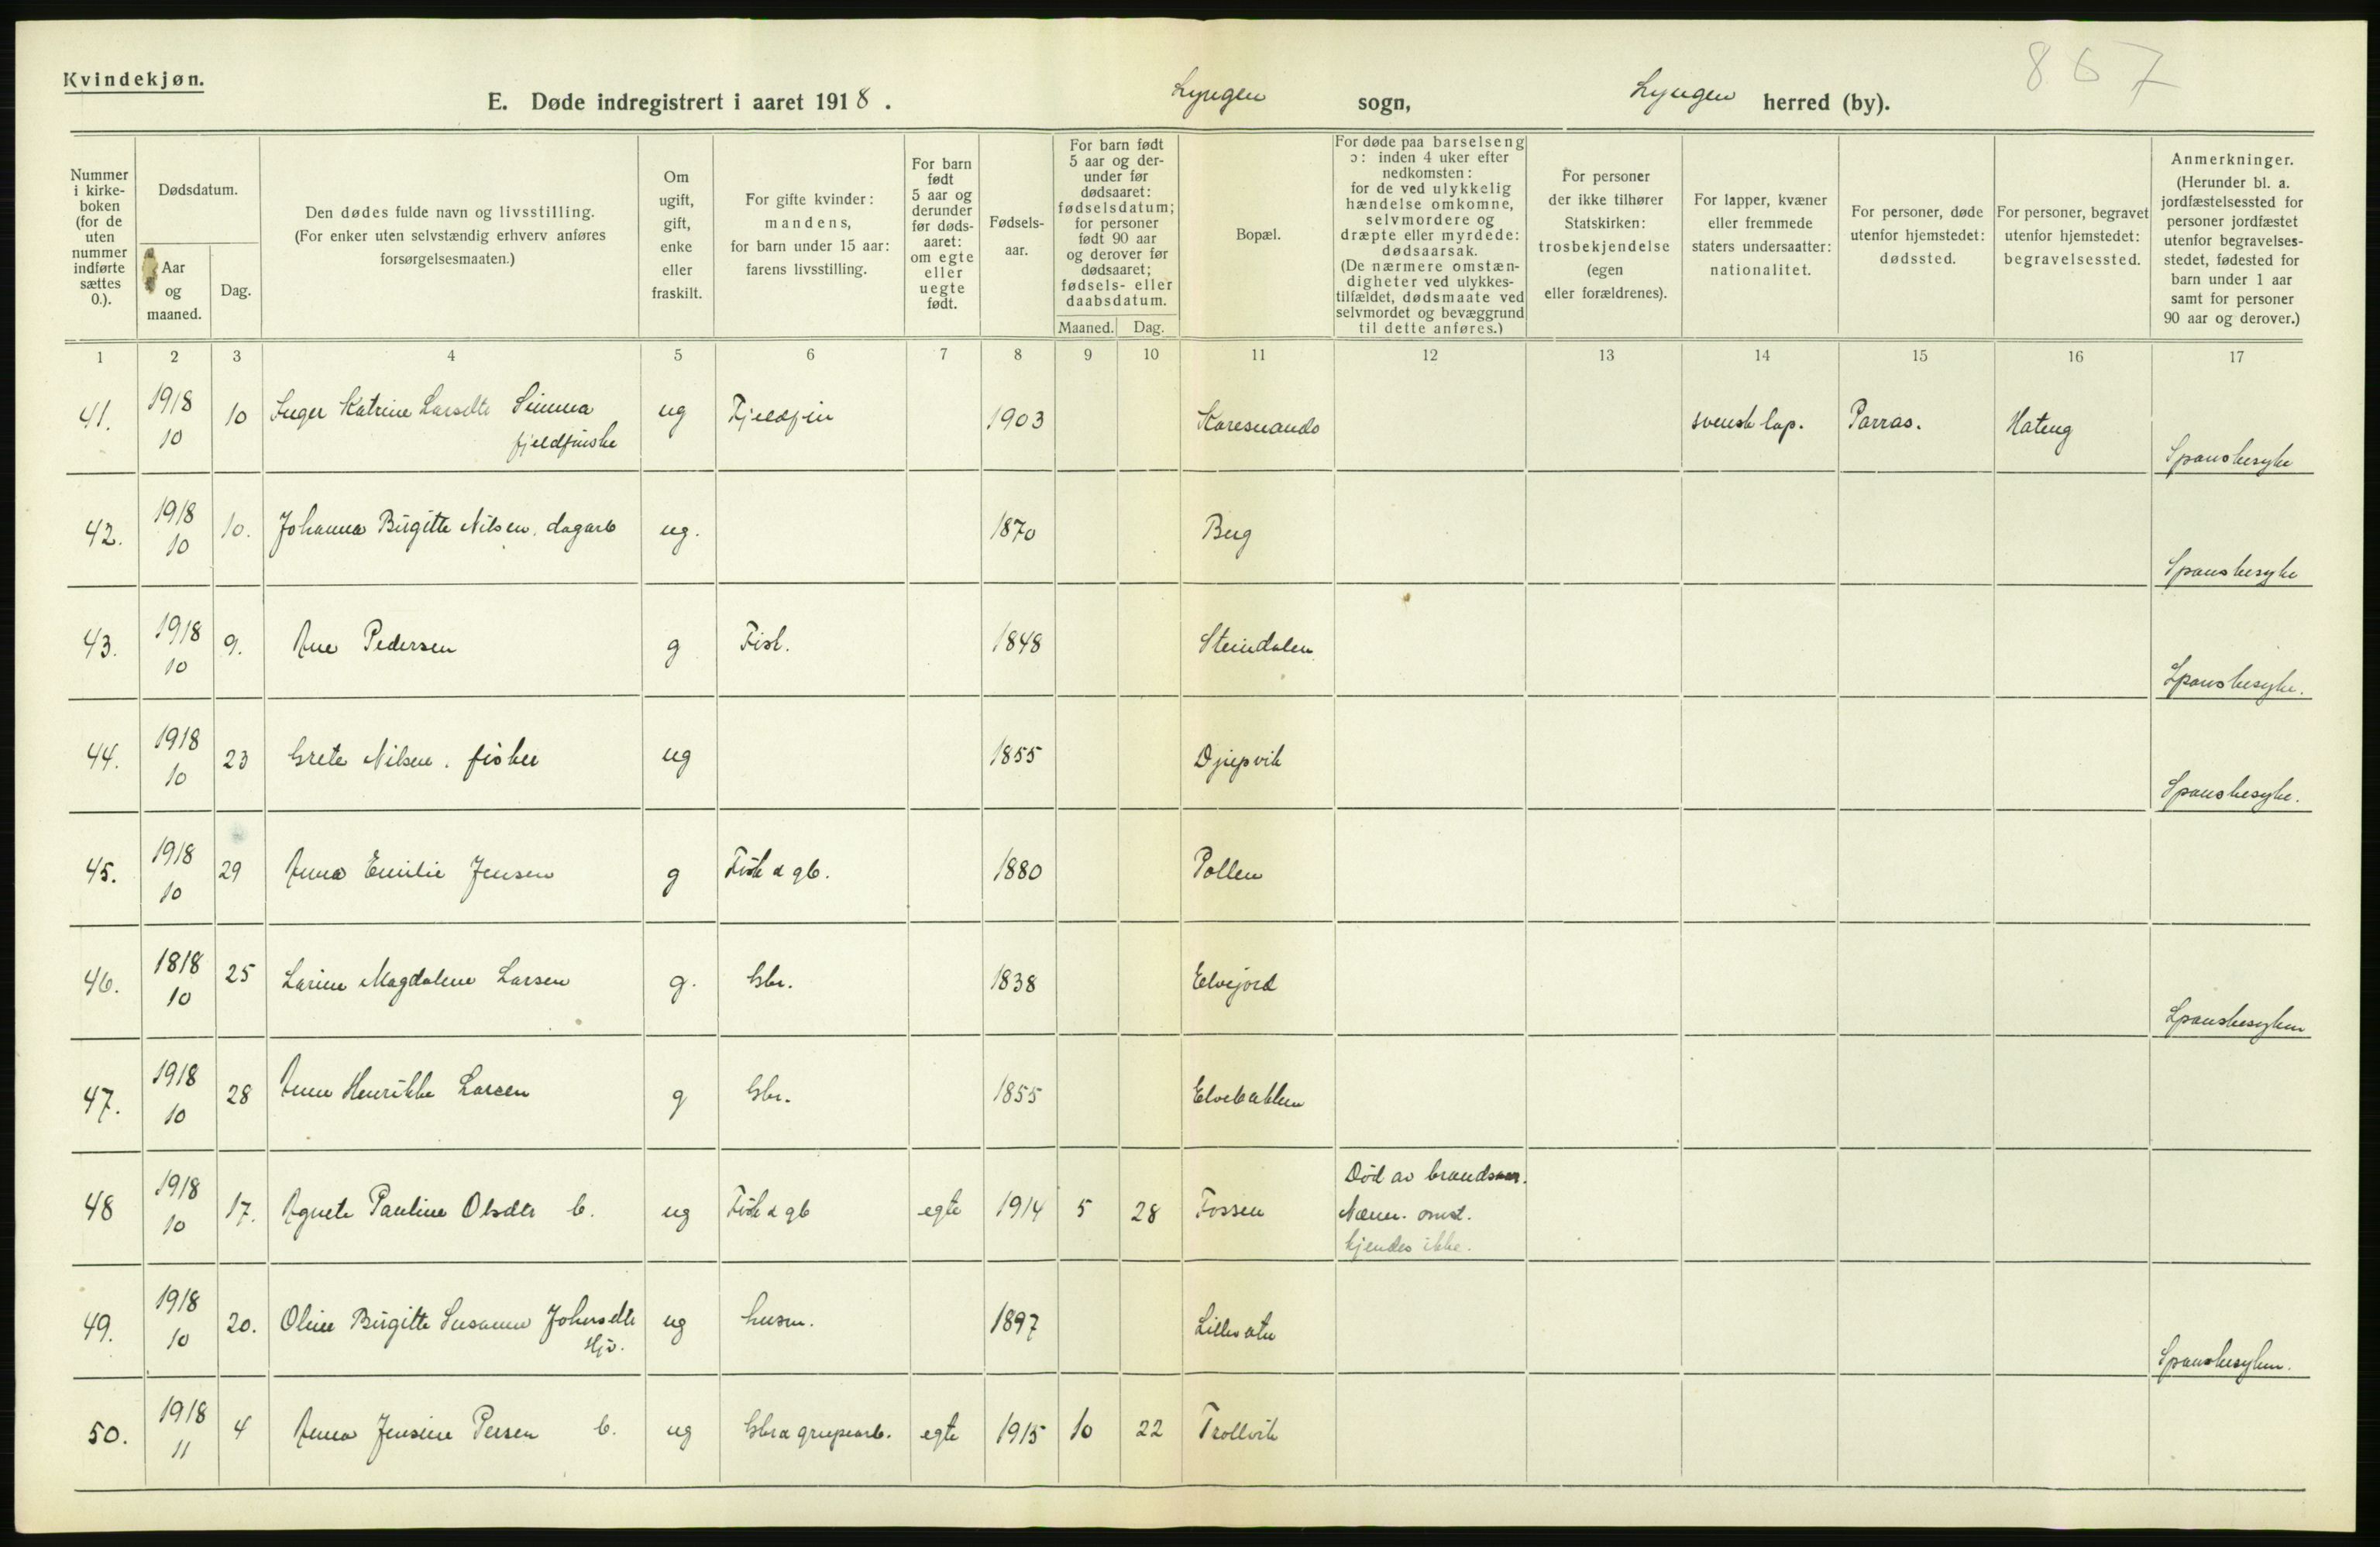 Kvindekjøn.
867
E. Døde indregistrert i aaret 1918. Lyngen sogn, Lyngen herred (by).
Nummer i kirkeboken (for de uten nummer indførte sættes 0.).
Dødsdatum.
Aar og maaned.
Dag.
Den dødes fulde navn og livsstilling.
(For enker uten selvstændig erhverv anføres forsørgelsesmaaten.)
Om ugift, gift, enke eller fraskilt.
For gifte kvinder: mandens, for barn under 15 aar: farens livsstilling.
For barn født 5 aar og derunder før dødsaaret: om egte eller uegte født.
Fødselsaar.
For barn født 5 aar og derunder før dødsaaret: fødselsdatum; for personer født 90 aar og derover før dødsaaret; fødsels- eller daabsdatum.
Maaned.
Dag.
Bopæl.
For døde paa barselseng ɔ: inden 4 uker efter nedkomsten: for de ved ulykkelig hændelse omkomne, selvmordere og dræpte eller myrdede: dødsaarsak.
(De nærmere omstændigheter ved ulykkestilfældet, dødsmaate ved selvmordet og bevæggrund til dette anføres.)
For personer der ikke tilhører Statskirken: trosbekjendelse (egen eller forældrenes).
For lapper, kvæner eller fremmede staters undersaatter: nationalitet.
For personer, døde utenfor hjemstedet: dødssted.
For personer, begravet utenfor hjemstedet: begravelsessted.
Anmerkninger.
(Herunder bl. a. jordfæstelsessted for personer jordfæstet utenfor begravelsesstedet, fødested for barn under 1 aar samt for personer 90 aar og derover.)
1 2 3 4 5 6 7 8 9 10 11 12 13 14 15 16 17
41. 1918 10 10 Inger Katrine Larsdtr Simma fjeldfinske ug Fjeldfin 1903 Karesuando svensk lap. Parras. Hateng Spanskesyke
42. 1918 10 10. Johanna Birgitte Nilsen, dagarb ug. 1870 Berg Spanskesyke
43. 1918 10 9. Ane Pedersen g Fisk. 1848 Steindalen Spanskesyke.
44. 1918 10 23 Grete Nilsen. fisker ug 1855 Djupvik Spanskesyke.
45. 1918 10 29 Anna Emilie Jensen g Fisk & gb. 1880 Pollen
46. 1818 10 25 Larine Magdalene Larsen g. Gbr. 1838 Elvejord Spanskesyken
47. 1918 10 28 Anne Henrikke Larsen g Gbr. 1855 Elvebakken
48 1918 10 17. Agnete Pauline Olsdtr b. ug Fisk & gb egte 1914 5 28 Fossen Død av brandsaar. Nærm. omst. kjendes ikke.
49. 1918 10 20. Oline Birgitte Susanne Johnsdtr Hjv. ug husm. 1897 Spanskesyken.
50. 1918 11 4 Anna Jensine Persen b. ug Gbr & grupearb. egte 1915 10 22 Trollvik